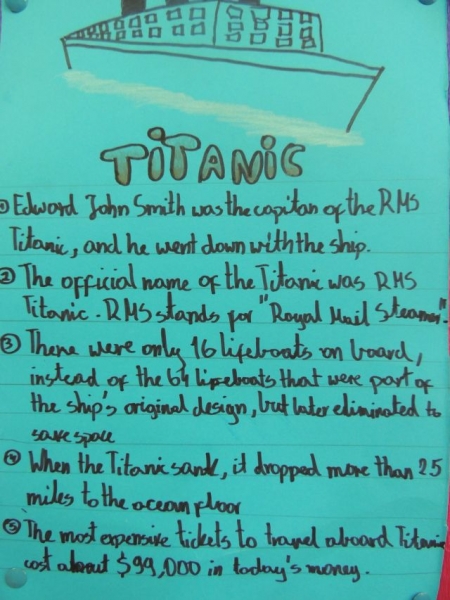 TiTANiC
① Edward John Smith was the capitan of the RMS
Titanic, and he went down with the ship.
② The official name of the Titanic was RMS
Titanic. RMS stands for "Royal Mail Steamer".
③ There were only 16 lifeboats on board,
instead of the 64 lifeboats that were part of
the ship's original design, but later eliminated to
save space
④ When the Titanic sank, it dropped more than 25
miles to the ocean floor
⑤ The most expensive tickets to travel aboard Titanic
cost about $99,000 in today's money.